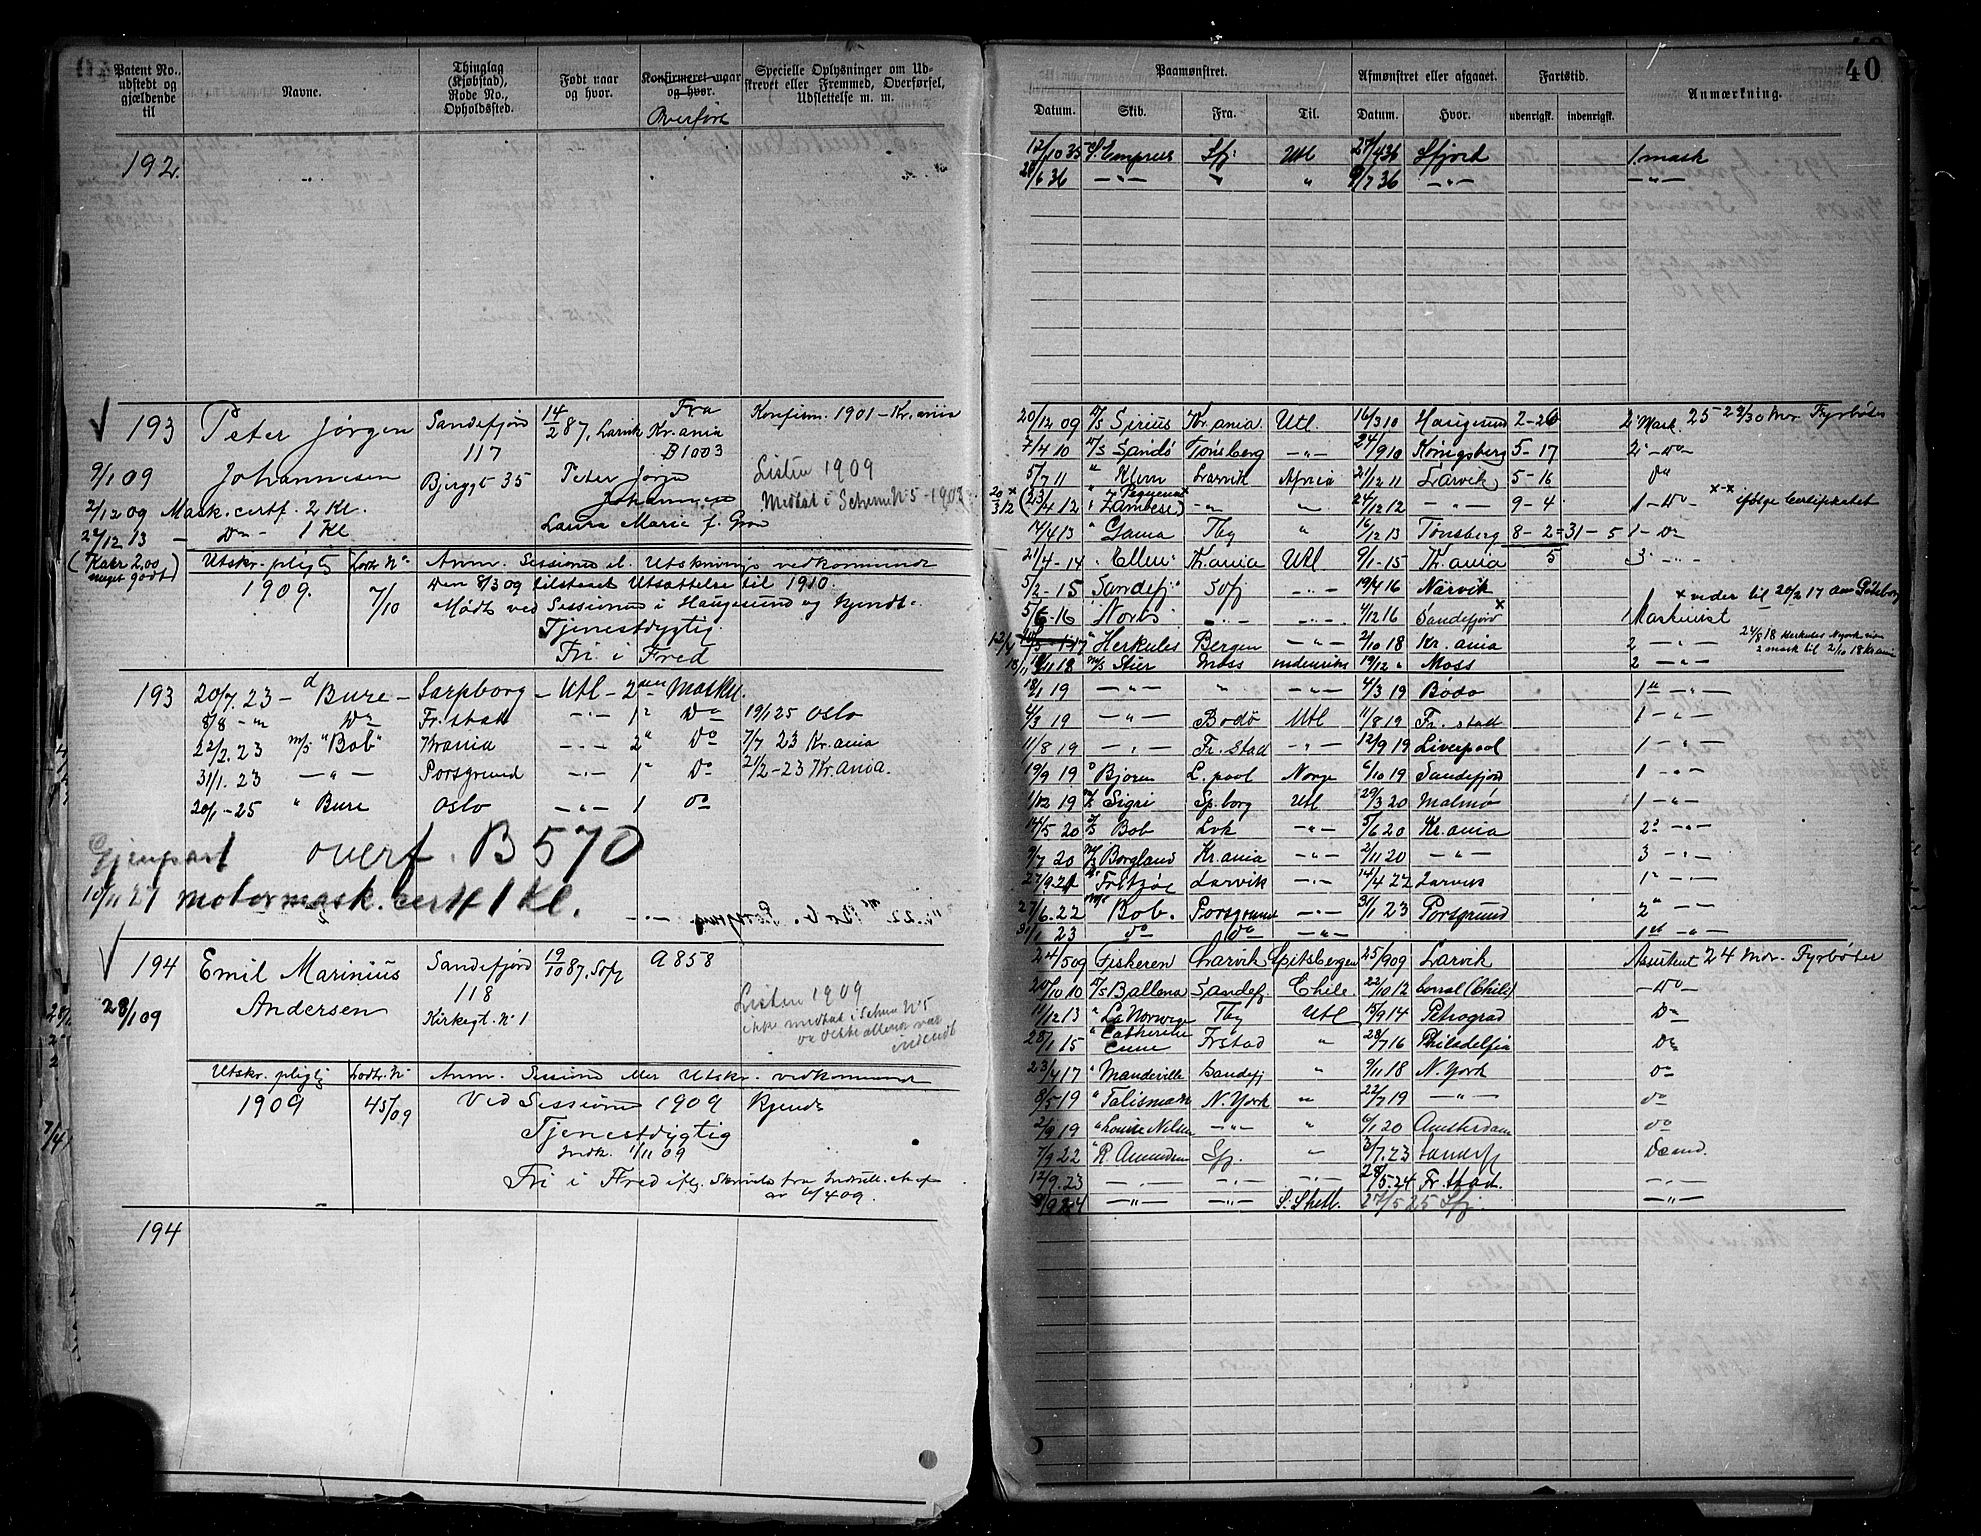 40
Patent No., udstedt og gjældende til
Navne.
Thinglag (Kjøbstad), Rode No., Opholdssted.
Født naar og hvor.
Konfirmeret naar og hvor.
Overført
Specielle Oplysninger om Udskrevet eller Fremmed, Overførsel, Udslettelse m. m.
Paamønstret.
Afmønstret eller afgaaet.
Fartstid.
Anmærkning.
Datum. Skib. Fra. Til. Datum. Hvor. udenrigsk. indenrigsk.
192.
12/10 35 Sfj. Utl 27/4 36 Sfjord 1. mask
36 — " — " 9/7 36 — " — — " —
193 Peter Jørgen Sandefjord 14/2 87, Larvik Fra Kr.ania Konfirm. 1901 – Kr.ania
117 B 1003
9/1 09 Johannesen Bjerggt 35 Peter Jørgen Listen 1909
Johannesen Medtat i Schema No 5 - 1903
2/12 09 Mask. certf. 2 Kl.
Laura Marie f.
22/12 13 — Do — 1 Kl
Utskr. pligtig Lodtr. No Anm. Sessions el. Utskrivnings vedkommende
1909. 7/10 Den 8/3 09 tilstaaet Utsættelse til 1910.
Mødt ved Sessionen i Haugesund og kjendt
Tjenestdygtig
Fri i Fred
20/12 09 Sirius Kr.ania Utl. 16/3 10 Haugesund 2-26 2 Mask. 25 - 23/30 Mdr. Fyrbøter
7/4 10 Sandø Tønsberg — " — 24/9 10 Königsberg 5-17 2 — do —
5/7 11 " Klem Larvik Africa 21/12 11 Larvik 5-16 do
23/4 12 " Zambesi — " — " 24/12 12 — " — 9-4 1 - do ifølge Certifikatet
4/13 " Gama Tbg " 16/12 13 Tønsberg 8-2 = 31-5 1 - Do
21/4 - 14 " Ellen Kr.ania Utl 9/1 - 15 Kr.ania 5 3 — " —
5/2 - 15 Sandefj. Sfj — " — 19/4 16 Narvik
5/6 - 16 Noris — " — — " — 4/12 16 Sandefjord 1 Maskinist
" Herkules Bergen " 2/10 18 Kr.ania 2 — " — 24/8 18 Herkules N york som 2 mask til 2/10 18 Kr.ania
18 m/s Stier Moss indenriks 19/12 " Moss 2 — " —
193 20/7. 23 — d Bure — Sarpborg — Utl — 2den Mask.
8/8 — " Do Fr.stad — " — 1 Do 19/1 25 Oslo
22/2. 23 m/s "Bob" Krania — " — 2 Do 7/7 23 Kr.ania
31/1. 23 — " — Porsgrund — " — 1 Do 2/2 - 23 Kr.ania.
20/1 - 25 " Bure Oslo — " — 1 do
Gjenpart overf. B 570
10/11 27 motormask. certf 1 Kl.
18/1 19 — " — " — " — 4/3 19 Bodø 1 — " —
4/3 19 — " — Bodø Utl 11/8 19 Fr. stad 1 — " —
11/8 19 — " — Fr. stad — " — 12/9 19 Liverpool 1 — " —
19/9 19 Bjoren L. pool Norge 6/10 19 Sandefjord 1 — " —
1/12 19 Sigri Sp.borg Utl 29/3 20 Malmø 1 — " —
14/5 20 Bob Lvk — " — 5/6 20 Kr.ania 2 — " —
9/7 20 Borgland Kr.ania — " — 2/11 20 — " — 3 — " —
27/9. 21 Fritzøe Larvik — " — 14/4 22 Larvik 1 — " —
27/6. 22 Bob. Porsgrund — " — 31/1 23 Porsgrund 2 — " —
31/1 23 do do — " — 1st — " —
194 Emil Marinius Sandefjord 19/10 87. Sfj A 858
Andersen 118
28/1 09 Kirkegt. No 1
Listen 1909
ikke medtat i Schema No 5
indendt
Utskr. pligtig Lodtr. No Anm. Sessions eller Utskr. vedkommende
1909 45/09 Ved Sessionen 1909 kjendt
Tjenestdygtig
Indk. 1/11 09
Fri i Fred iflg. Skrivelse fra Indrull. chef
av 6/4 09.
24/5 09 Fiskeren Larvik Spitsbergen 25/9 09 Larvik Assistent 24 Mdr. Fyrbøter
20/10 10 Ballena Sandefj Chile 22/10 12 Corral (Chile) — do —
11/12 13 " La Norwega Tbg Utl 15/9 14 Petrograd Do
28/1 15 " Catherine Frstad " 28/7 16 Philadelfia Do
23/4 17 " Mandeville Sandefj " 9/11 18 N. York do
8/5 19 " Talisman N. York " 22/7 19 — " — do
2/9 19 " Louise Nilsen — " — " 6/1 20 Amsterdam do
7/9 22 " R. Amundsen Sfj. " 3/7. 23 Sandefj
12/9. 23 — " — — " — — " — 28/5. 24 Fr.stad. — " —
9 24 — " — — " — S. Shetl. 27/5 25 Sfj. — " —
194